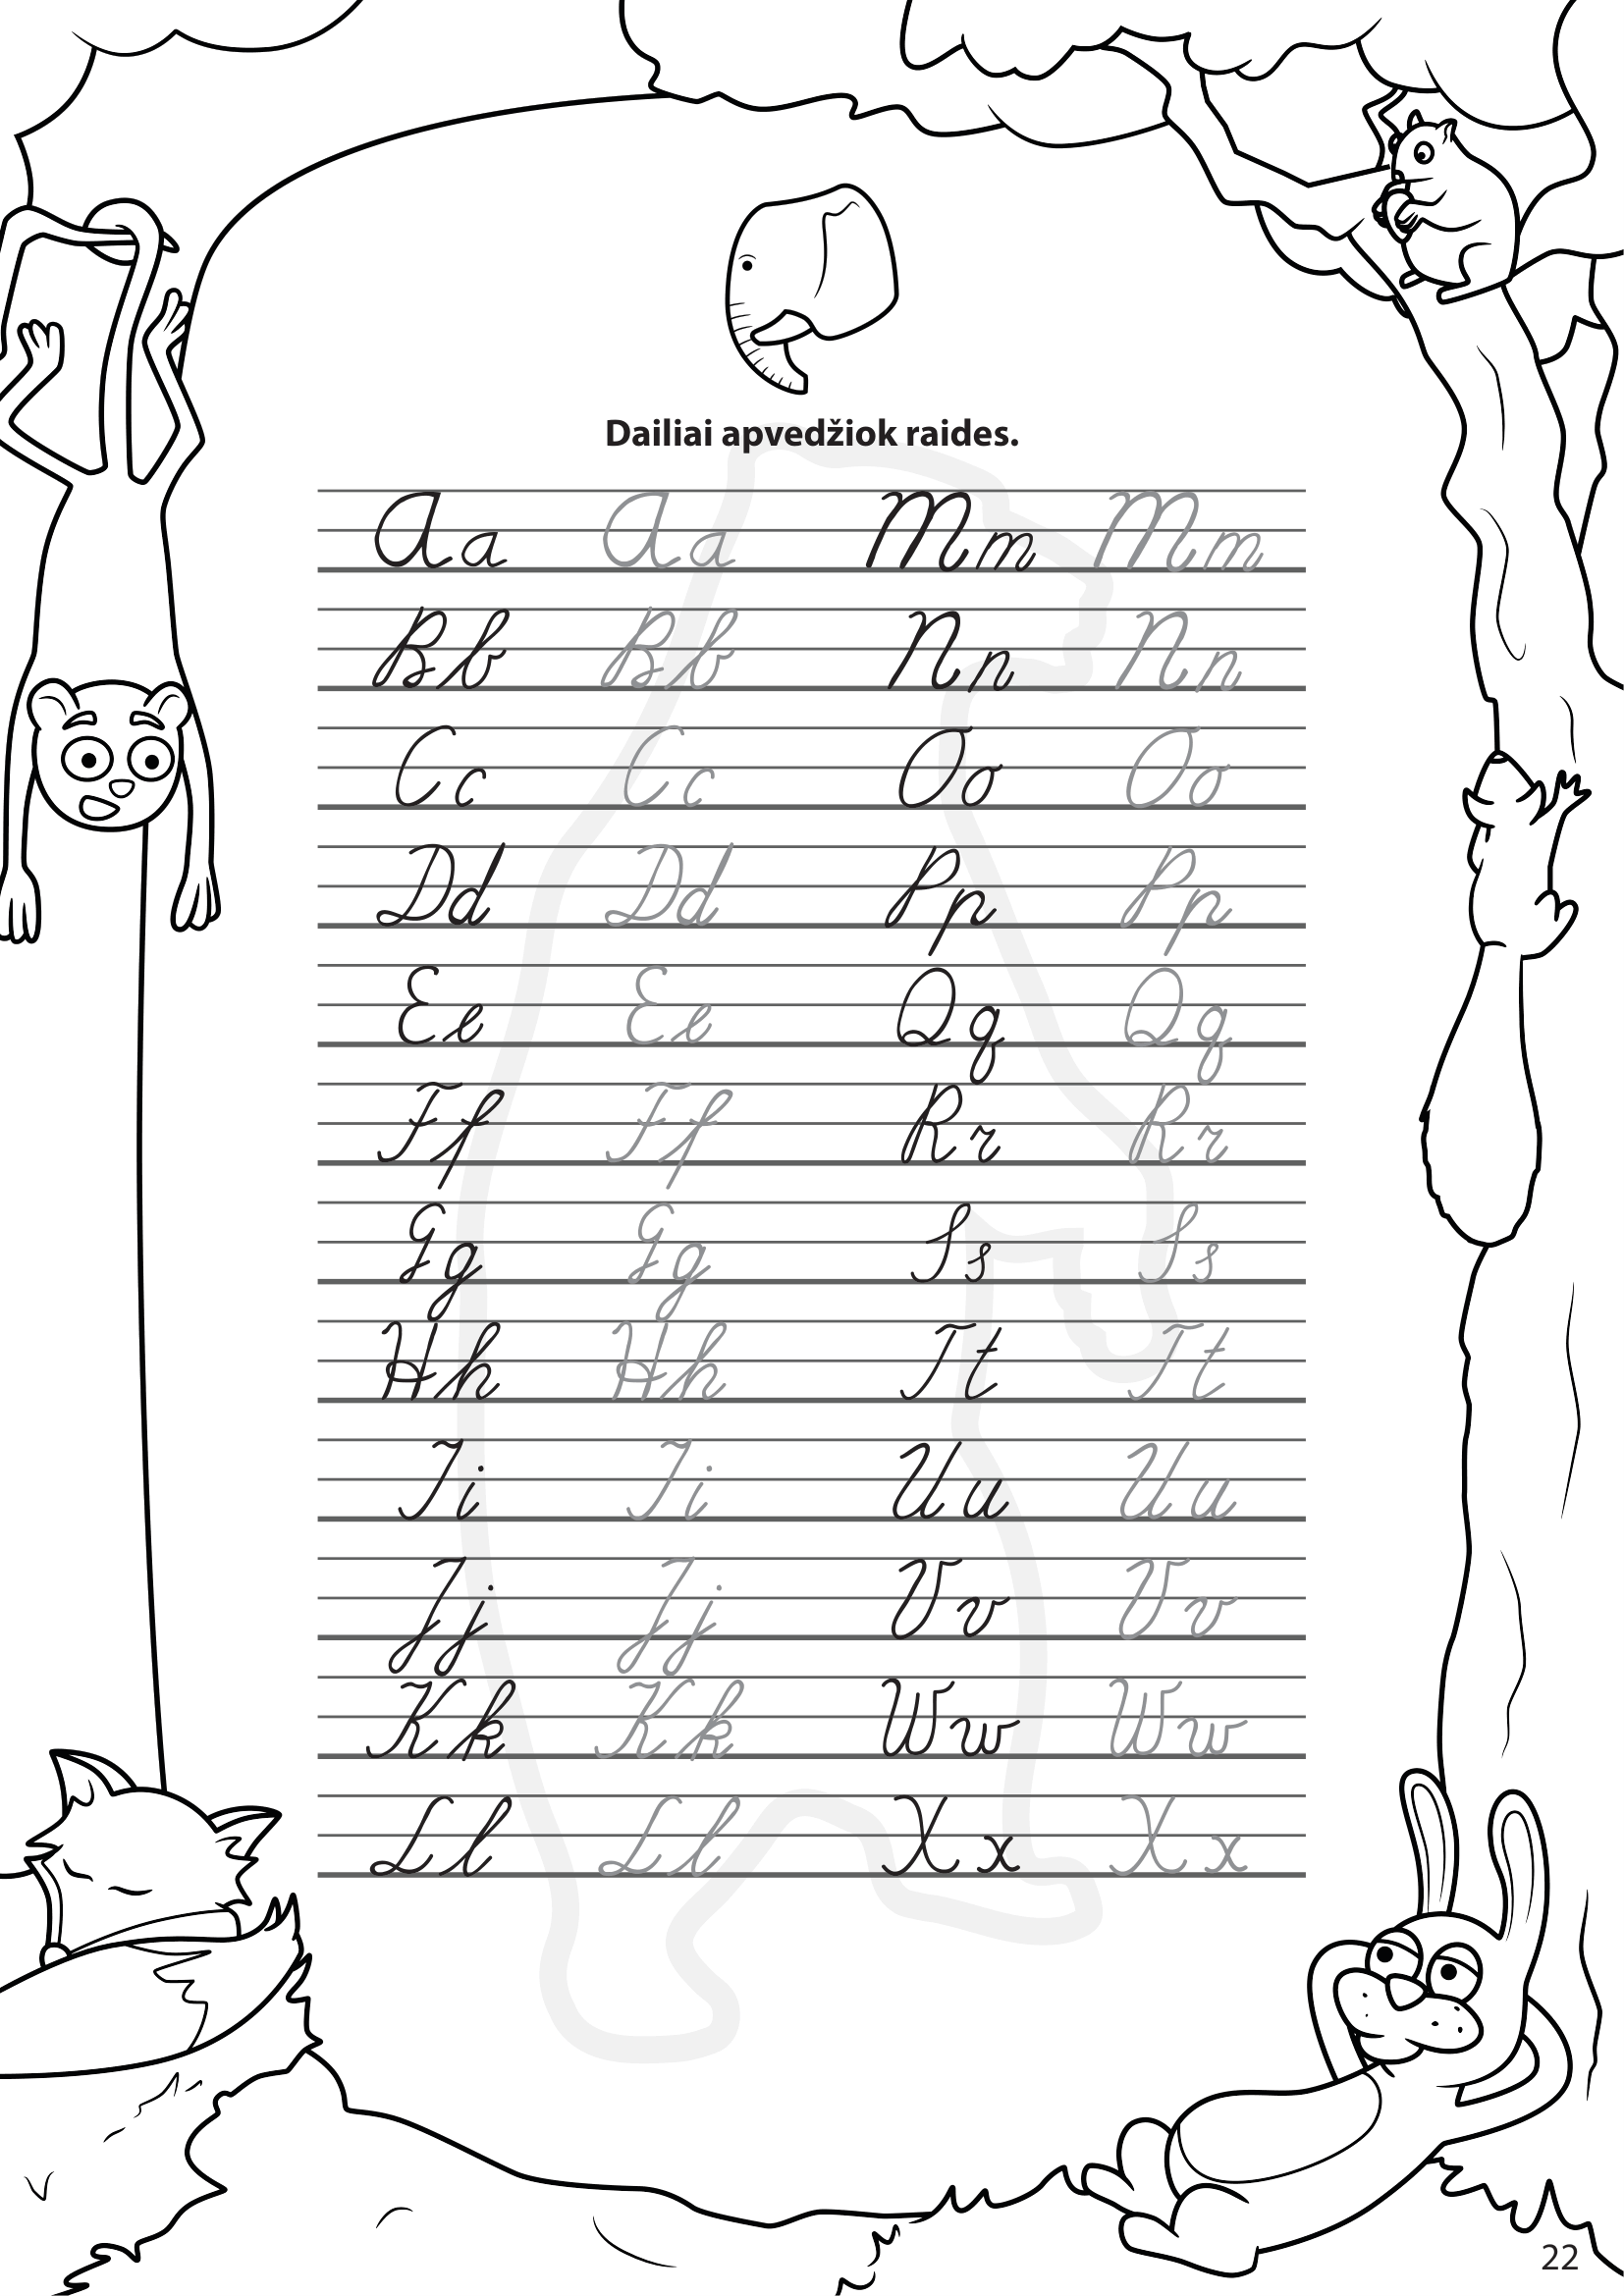 Dailiai apvedžiok raides.
Aa Aa Mm Mm
Bb Bb Nn Nn
Cc Cc Oo Oo
Dd Dd Pp Pp
Ee Ee Qq Qq
Ff Ff Rr Rr
Gg Gg Ss Ss
Hh Hh Tt Tt
Ii Ii Uu Uu
Jj Jj Vv Vv
Kk Kk Ww Ww
Ll Ll Xx Xx
22